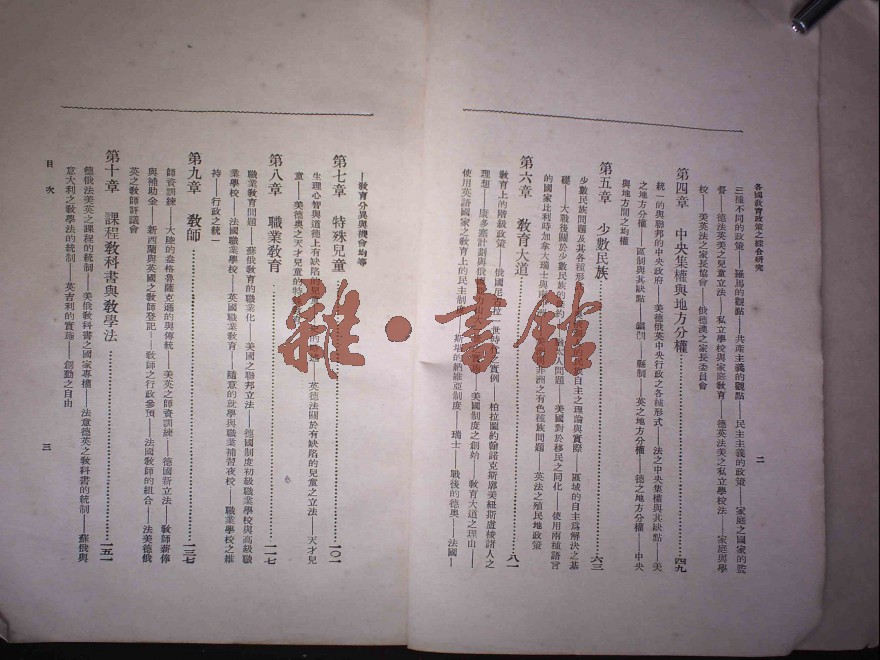 各國教育政策之綜合研究
二
三種不同的政策——羅馬的觀點——共產主義的觀點——民主主義的政策——家庭之國家的監
督——德法英美之兒童立法——私立學校與家庭教育——德英法美之私立學校法——家庭與學
校——美英法之家長協會——俄德漢之家長委員會
第四章 中央集權與地方分權……四九
統一的與聯邦的中央政府——美德俄英中央行政之各種形式——法之中央集權與其缺點——美
之地方分權——區制與其缺點——縣制——英之地方分權——德之地方分權——中央
與地方間之均權
第五章 少數民族……六三
少數民族問題及其各種形式 自主之理論與實際——區域的自主為解決之基
礎——大戰後關於少數民族的 問題——美國對於移民之同化——使用兩種語言
的國家比利時加拿大瑞士與 非洲之有色種族問題——英法之殖民地政策
第六章 教育大道……八一
教育上的階級政策——俄國尼古拉一世時代之實例——柏拉圖約翰諾克斯廓美紐斯盧梭諸人之
理想——康多塞計劃與俄 美國制度之創始——教育大道之理由——
使用英語國家之教育上的民主制度——斯堪的納維亞制度——瑞士——戰後的德奧——法國——
——教育分異與機會均等
第七章 特殊兒童……一〇一
生理心智與道德上有缺陷的兒童 英德法關於有缺陷的兒童之立法——天才兒
童——美德奧之天才兒童的特殊教育
第八章 職業教育……一一七
職業教育問題——蘇俄教育的職業化——美國之聯邦立法——德國制度初級職業學校與高級職
業學校——法國職業學校——英國職業教育——隨意的就學與職業補習夜校——職業學校之維
持——行政之統一
第九章 教師……一三七
師資訓練——大陸的盎格魯薩克遜的與傳統——美英之師資訓練——德國新立法——教師薪俸
與補助金——新西蘭與英國之教師登記——教師之行政參預——法國教師的組合——法美德俄
英之教師評議會
第十章 課程教科書與教學法……一五一
德俄法美英之課程的統制——美俄教科書之國家專權——法意德英之教科書的統制——蘇俄與
意大利之教學法的統制——英吉利的實施——創動之自由
目次
三
雜·書館